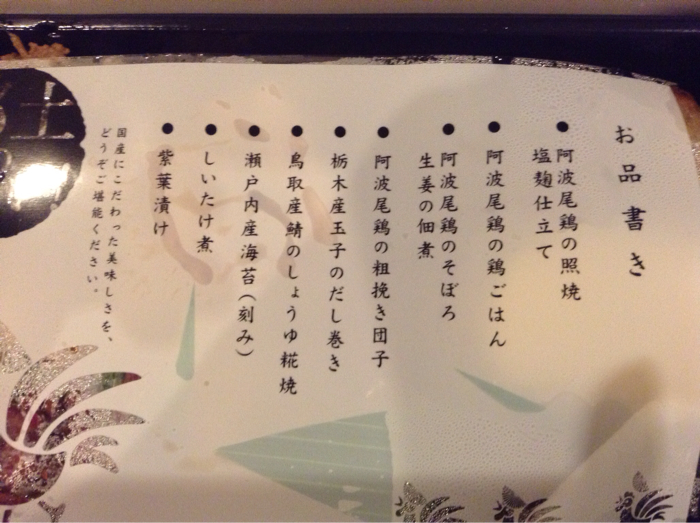 お品書き
●阿波尾鶏の照焼
塩麹仕立て
●阿波尾鶏の鶏ごはん
●阿波尾鶏のそぼろ
生姜の佃煮
●阿波尾鶏の粗挽き団子
●栃木産玉子のだし巻き
●鳥取産鯖のしょうゆ糀焼
●瀬戸内産海苔(刻み)
●しいたけ煮
●紫葉漬け
国産にこだわった美味しさを、
どうぞご堪能ください。